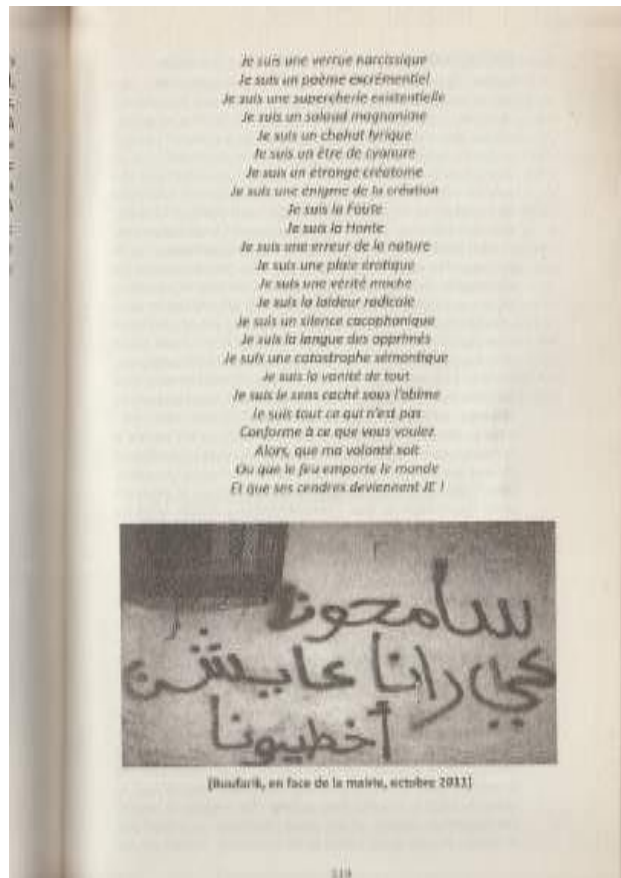 Je suis une verrue narcissique
Je suis un poème excrémentiel
Je suis une supercherie existentielle
Je suis un salaud magnanime
Je suis un chahut lyrique
Je suis un être de cyanure
Je suis un étrange créatome
Je suis une énigme de la création
Je suis la Faute
Je suis la Honte
Je suis une erreur de la nature
Je suis une plaie érotique
Je suis une vérité moche
Je suis la laideur radicale
Je suis un silence cacophonique
Je suis la langue des opprimés
Je suis une catastrophe sémantique
Je suis la vanité de tout
Je suis le sens caché sous l'abîme
Je suis tout ce qui n'est pas
Conforme à ce que vous voulez
Alors, que ma volonté soit
Ou que le feu emporte le monde
Et que ses cendres deviennent JE !
سامحونا
كي رانا عايشين
أخطيونا
(Boufarik, en face de la mairie, octobre 2011)